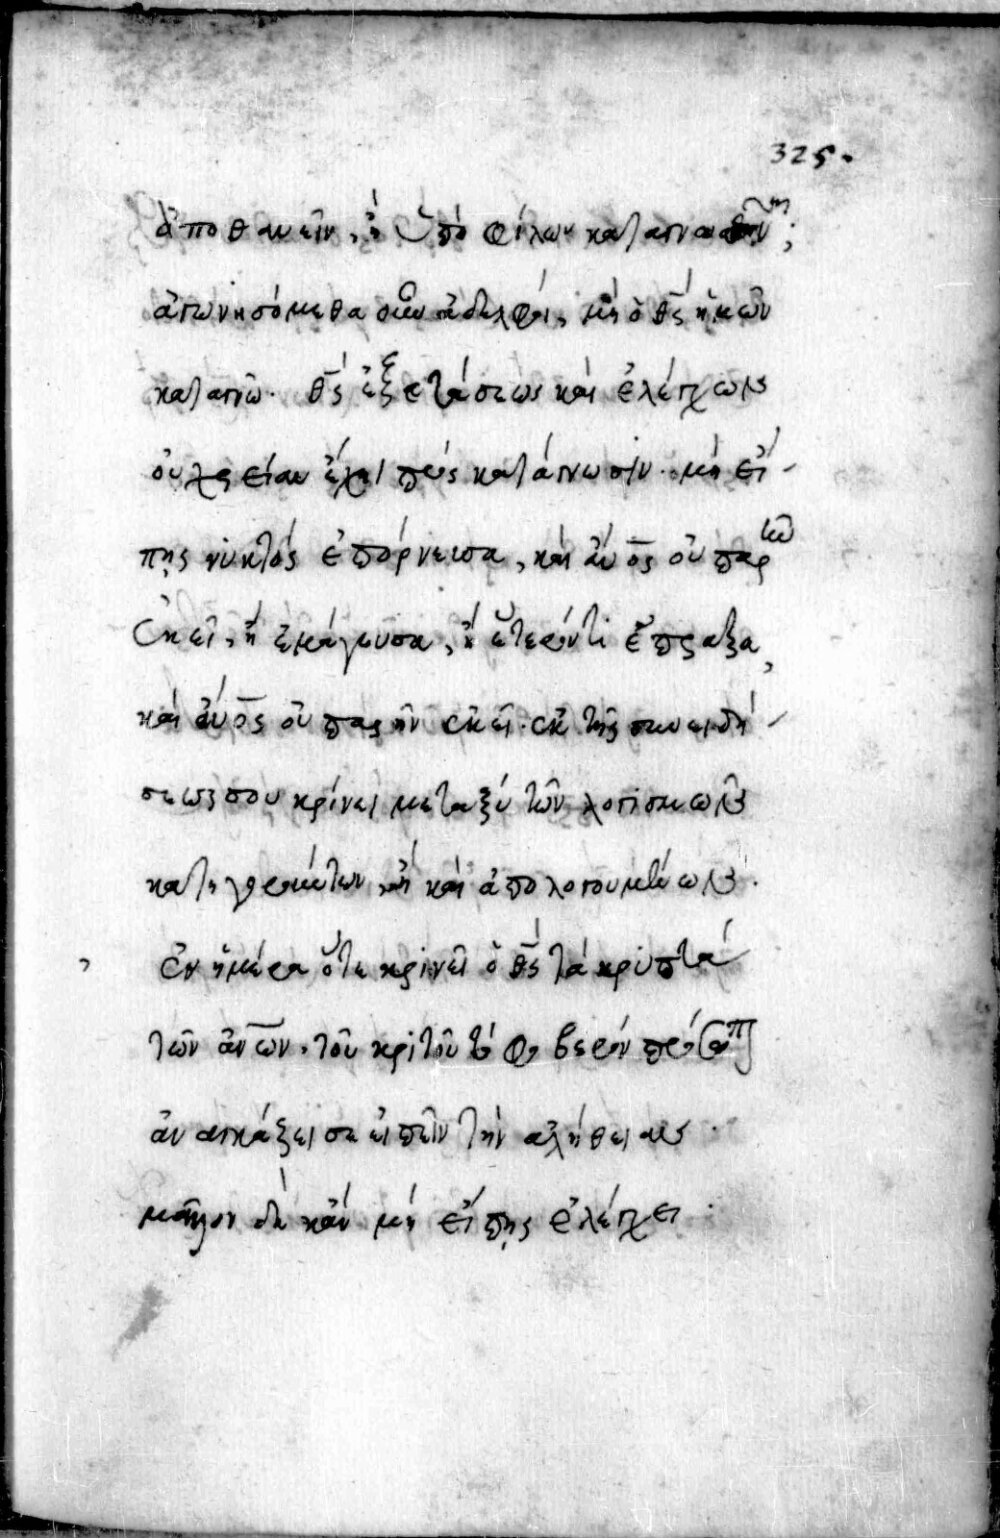 325.
ἀποθανεῖν, ἢ ὑπὸ φίλων καταγνωσθῆναι;
ἀγωνισόμεθα οὖν ἀδελφοί, μὴ ὁ θς ἡμῶν
καταγνῶ. θς ἐξετάσεως καὶ ἐλέγχων
οὐ χρείαν ἔχει πρὸς κατάγνωσιν. μὴ εἴ-
πῃς νυκτὸς ἐπόρνευσα, καὶ αὐτὸς οὐ παρῆν
ἐκεῖ, ἢ ἐμάγευσα, ἢ ἕτερόν τι ἔπραξα,
καὶ αὐτὸς οὐ παρῆν ἐκεῖ. ἐκ τῆς συνειδή-
σεώς σου κρίνει μεταξὺ τῶν λογισμῶν
κατηγορούντων ἢ καὶ ἀπολογουμένων.
ἐν ἡμέρα ὅτε κρινεῖ ὁ θς τὰ κρυπτὰ
τῶν ἀνων. τοῦ κριτοῦ τὸ φοβερὸν πρόσωπ
ἀναγκάζει σε εἰπεῖν τὴν αλήθειαν.
μᾶλλον δὲ κἂν μὴ εἴπῃς ἐλέγχει